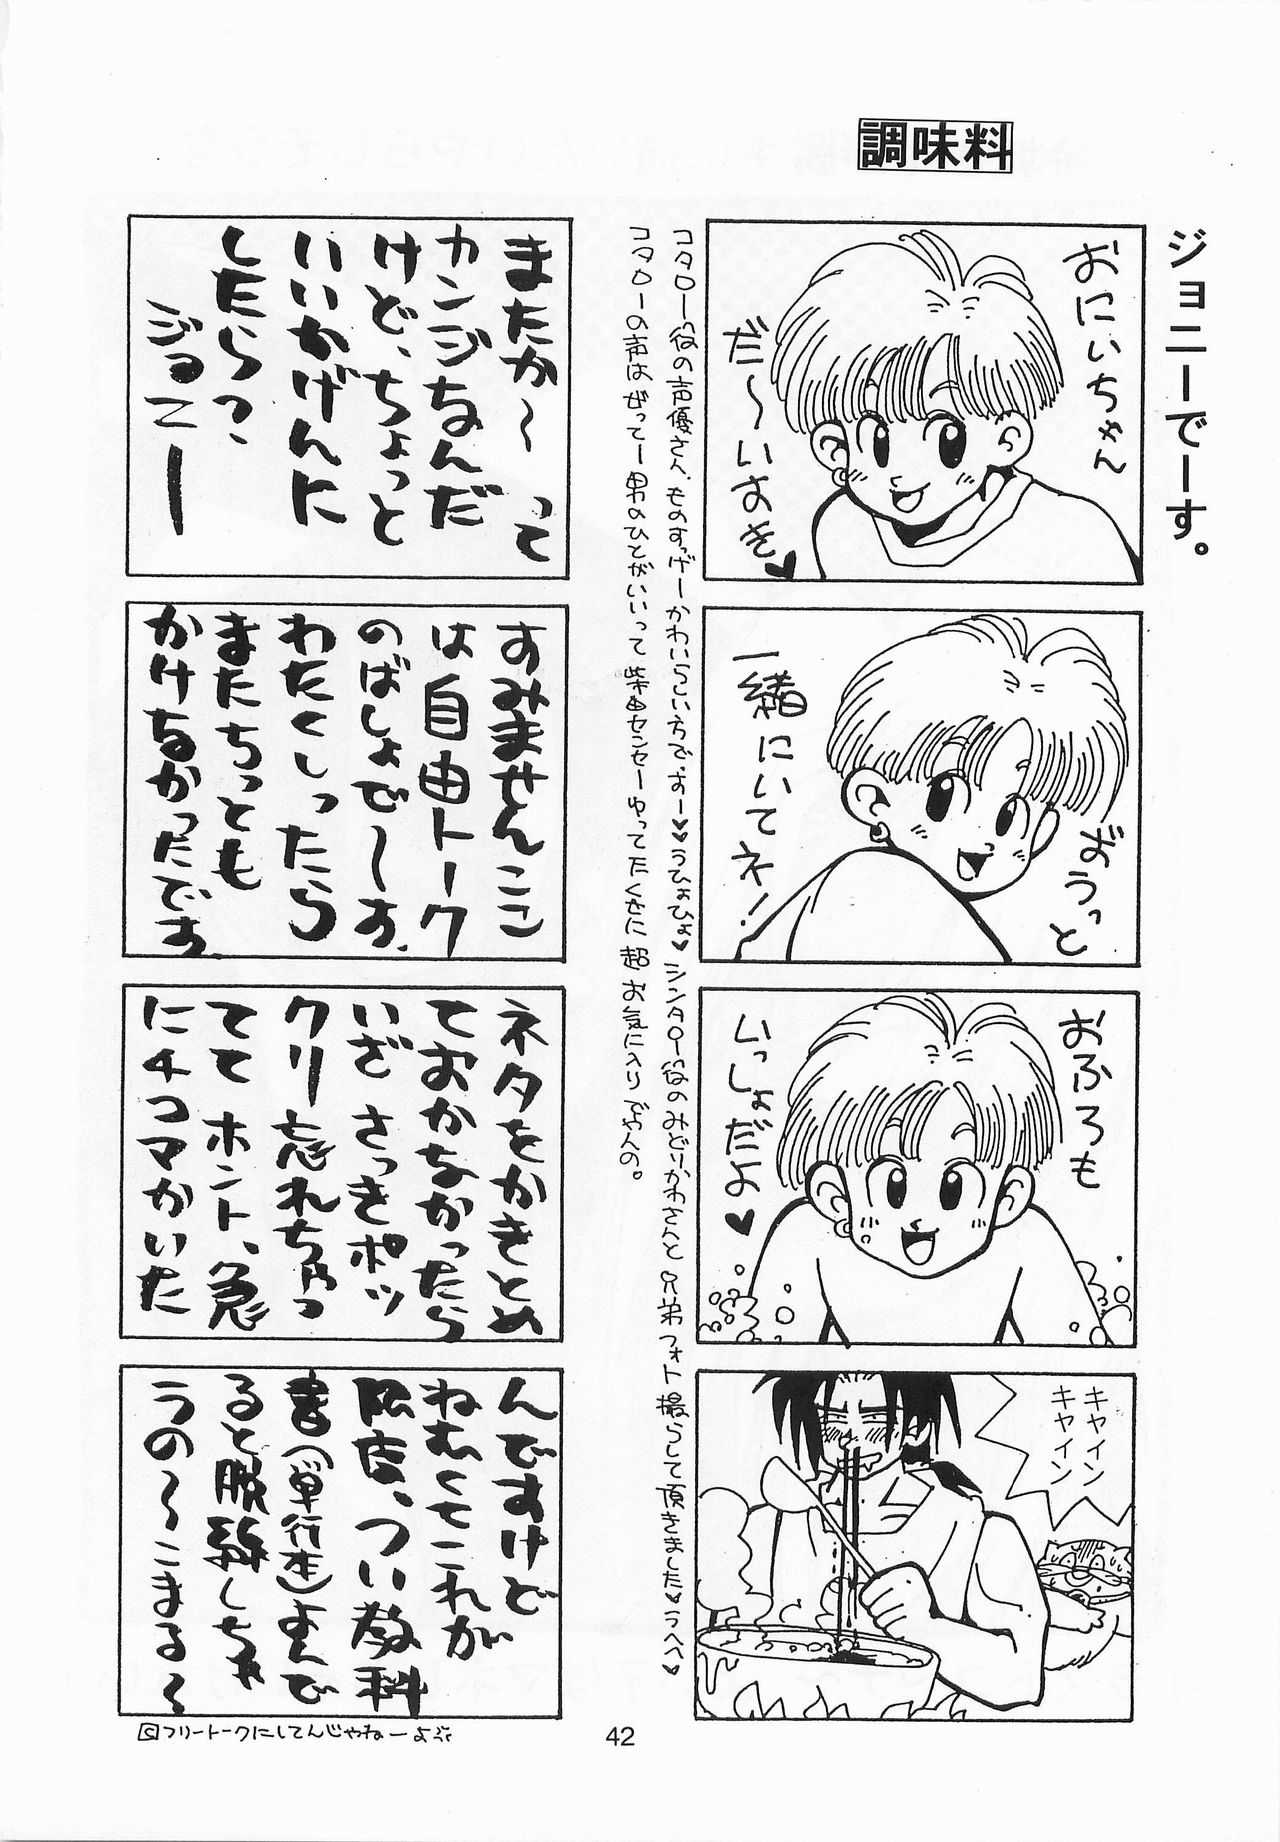 調味料
ジョニーでーす。
おにいちゃん
だ〜いすき♥
ずうっと
一緒にいてネ!
おふろも
いっしょだよ♥
キャイン
キャイン
コタロー役の声優さん、ものすっげーかわいらしい方で、すー♥♥うひょひょ♥シンタロー役のみどりかわさんと兄弟フォト撮らして頂きました♥うへへ♥
コタローの声はぜってー男のひとがいいって柴田センセーゆってたくせに超お気に入りでやんの。
またか〜って
カンジなんだ
けど、ちょっと
いいかげんに
したら?
ジョニー
すみませんここ
は自由トーク
のばしょでーす。
わたくしったら
またちっとも
かけなかったです
ネタをかきとめ
ておかなかったら
いざさっきポッ
クリ忘れちゃっ
てて ホント、急
に4コマかいた
んですけど
ねむくてこれが
限店、つい教科
書(単行本)よんで
ると脱線しちゃ
うの〜こまる〜
フリートークにしてんじゃねーよ
42